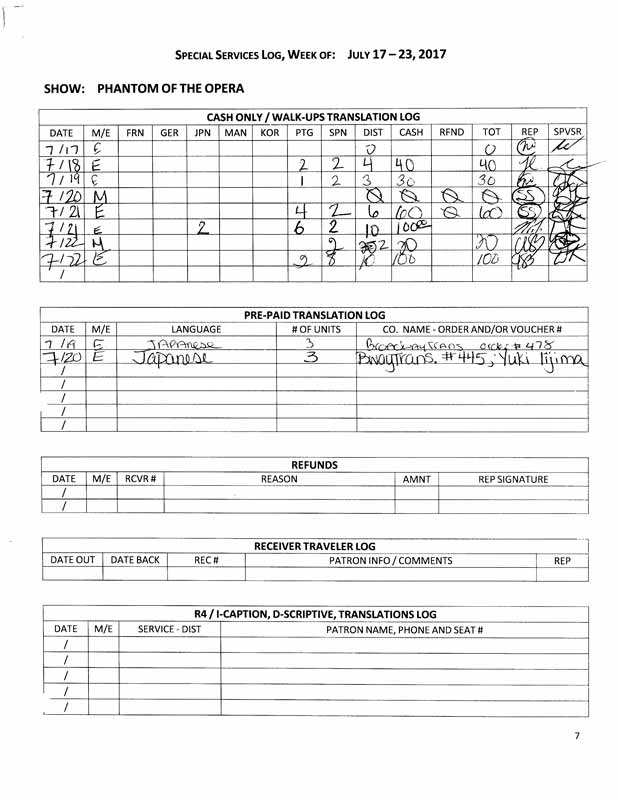 SPECIAL SERVICES LOG, WEEK OF: JULY 17 – 23, 2017
SHOW: PHANTOM OF THE OPERA
CASH ONLY / WALK-UPS TRANSLATION LOG
DATE M/E FRN GER JPN MAN KOR PTG SPN DIST CASH RFND TOT REP SPVSR
7/17 E 0 0
7/18 E 2 2 4 40 40
7/19 E 1 2 3 30 30
7/20 M 0 0 0 0 SS
7/21 E 4 2 6 60 0 60 SS
7/21 E 2 6 2 10 100
7/22 M 2 2 20 20
7/22 E 2 8 10 100 100
/
PRE-PAID TRANSLATION LOG
DATE M/E LANGUAGE # OF UNITS CO. NAME - ORDER AND/OR VOUCHER #
7/19 E JAPANese 3 BroadwayTrans order # 478
7/20 E Japanese 3 BwayTrans. #445, Yuki Iijima
/
/
/
/
/
REFUNDS
DATE M/E RCVR # REASON AMNT REP SIGNATURE
/
/
RECEIVER TRAVELER LOG
DATE OUT DATE BACK REC # PATRON INFO / COMMENTS REP
R4 / I-CAPTION, D-SCRIPTIVE, TRANSLATIONS LOG
DATE M/E SERVICE - DIST PATRON NAME, PHONE AND SEAT #
/
/
/
/
/
7